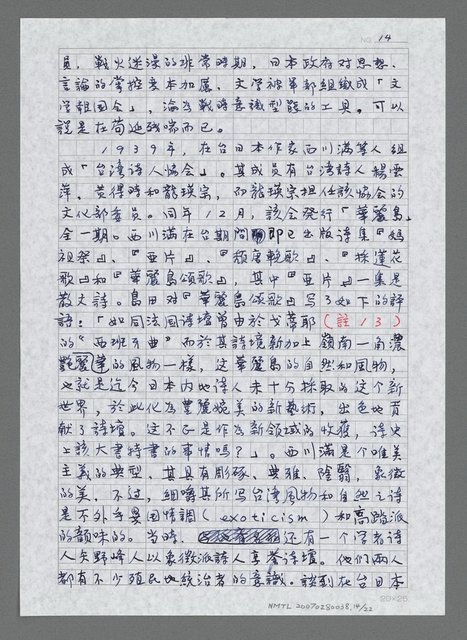 NO. 14
員，戰火迷漫的非常時期，日本政府對思想、
言論的掌控变本加厲，文学被軍部組織成「文
学報国会」，淪為戰時意識型態的工具。可以
說是在苟延殘喘而已。
1939年，在台日本作家西川滿等人組
成「台湾詩人協会」。其成員有台湾詩人楊雲
萍、黄得時和龍瑛宗，而龍瑛宗担任該協会的
文化部委員。同年12月，該会発行「華麗島」
全一期。西川滿在台期間即已出版詩集『媽
祖祭』、『亜片』、『採蓮花
歌』和『華麗島頌歌』，其中『亜片』一集是
散文詩。島田对『華麗島頌歌』写了如下的評
語：「如同法国詩壇曽由於戈蒂耶（註13）
的“西班牙曲”而於其詩境新加上嶺南一角濃
艷華的風物一樣，这華麗島的自然和風物，
也就是迄今日本内地詩人未十分採取的这个新
世界，於此化為豊麗媲美的新藝術，出色地貢
献了詩壇。这不正是作為新領域的收穫，詩史
上該大書特書的事情嗎？」。西川滿是个唯美
主義的典型，其具有彫琢、典雅、陰翳、象徴
的美，不过，細嚼其所写台湾風物和自然之詩
是不外乎異国情調（exoticism）和高踏派
的韻味的。當時，還有一个学者詩
人矢野峰人以象徴派詩人享誉詩壇。他們兩人
都有不少殖民地統治者的意識。談到在台日本
20×25
NMTL 20070280038, 14/22